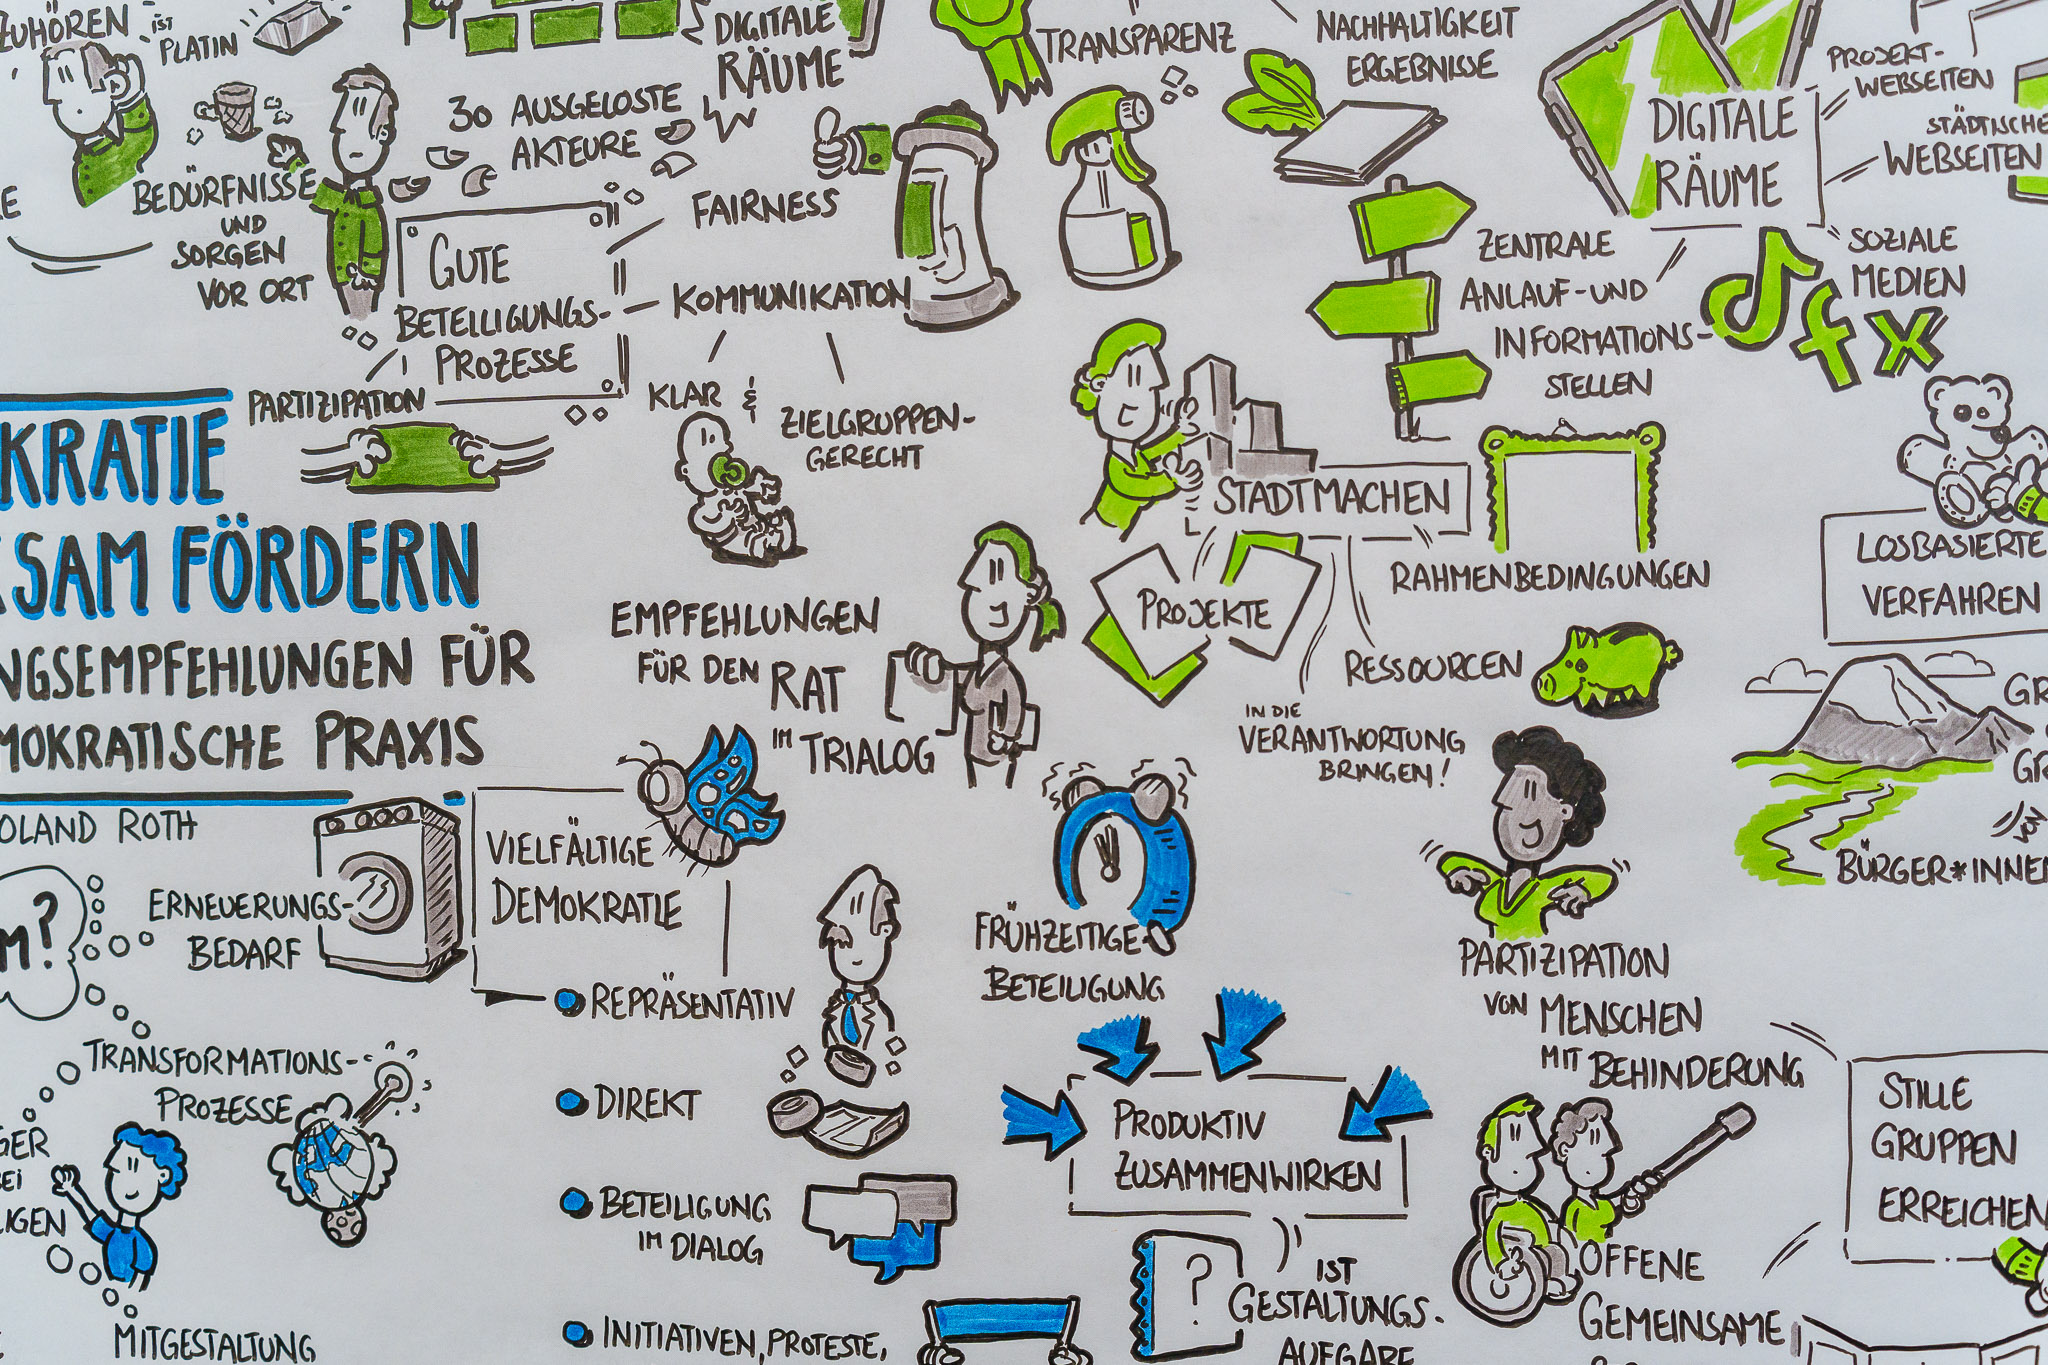 ZUHÖREN
IST
PLATIN
BEDÜRFNISSE
UND
SORGEN
VOR ORT
30 AUSGELOSTE
AKTEURE
DIGITALE
RÄUME
GUTE
BETEILIGUNGS-
PROZESSE
FAIRNESS
KOMMUNIKATION
KLAR &
ZIELGRUPPEN-
GERECHT
PARTIZIPATION
TRANSPARENZ
NACHHALTIGKEIT
ERGEBNISSE
DIGITALE
RÄUME
PROJEKT-
WEBSEITEN
STÄDTISCHE
WEBSEITEN
SOZIALE
MEDIEN
ZENTRALE
ANLAUF-UND
INFORMATIONS-
STELLEN
KRATIE
SAM FÖRDERN
NGSEMPFEHLUNGEN FÜR
MOKRATISCHE PRAXIS
OLAND ROTH
EMPFEHLUNGEN
FÜR DEN RAT
IM TRIALOG
STADTMACHEN
PROJEKTE
RAHMENBEDINGUNGEN
RESSOURCEN
IN DIE
VERANTWORTUNG
BRINGEN!
LOSBASIERTE
VERFAHREN
GR
GR
VON
BÜRGER*INNEN
M?
ERNEUERUNGS-
BEDARF
TRANSFORMATIONS-
PROZESSE
GER
BEI
LIGEN
MITGESTALTUNG
VIELFÄLTIGE
DEMOKRATIE
REPRÄSENTATIV
DIREKT
BETEILIGUNG
IM DIALOG
INITIATIVEN, PROTESTE,
FRÜHZEITIGE
BETEILIGUNG
PRODUKTIV
ZUSAMMENWIRKEN
?
IST
GESTALTUNGS-
AUFGABE
PARTIZIPATION
VON MENSCHEN
MIT BEHINDERUNG
OFFENE
GEMEINSAME
STILLE
GRUPPEN
ERREICHEN